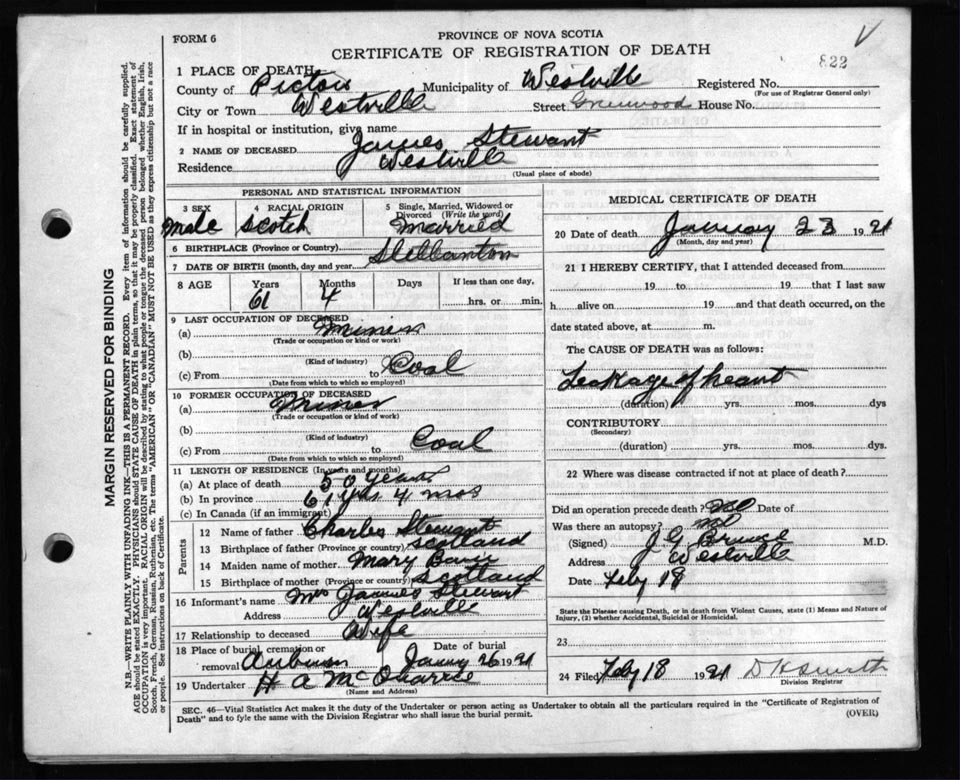 FORM 6
PROVINCE OF NOVA SCOTIA
CERTIFICATE OF REGISTRATION OF DEATH
822
1 PLACE OF DEATH
County of Pictou Municipality of Westville Registered No.
(For use of Registrar General only)
City or Town Westville Street Greenwood House No.
If in hospital or institution, give name
2 NAME OF DECEASED James Stewart
Residence Westville
(Usual place of abode)
PERSONAL AND STATISTICAL INFORMATION
3 SEX 4 RACIAL ORIGIN 5 Single, Married, Widowed or Divorced (Write the word)
Male Scotch Married
6 BIRTHPLACE (Province or Country)
7 DATE OF BIRTH (month, day and year)
8 AGE Years Months Days If less than one day,
61 4 hrs. or min.
9 LAST OCCUPATION OF DECEASED
(a) Miner
(Trade or occupation or kind or work)
(b)
(Kind of industry)
(c) From to Coal
(Date from which to which so employed)
10 FORMER OCCUPATION OF DECEASED
(a) Miner
(Trade or occupation or kind of work)
(b)
(Kind of industry)
(c) From to Coal
(Date from which to which so employed)
11 LENGTH OF RESIDENCE (In years and months)
(a) At place of death 50 years
(b) In province 61 yrs 4 mos
(c) In Canada (if an immigrant)
Parents
12 Name of father Charles Stewart
13 Birthplace of father (Province or country) Scotland
14 Maiden name of mother Mary
15 Birthplace of mother (Province or country) Scotland
16 Informant's name Mrs James Stewart
Address Westville
17 Relationship to deceased Wife
18 Place of burial, cremation or removal Auburn Date of burial Jany 26 1921
19 Undertaker H A
(Name and Address)
MEDICAL CERTIFICATE OF DEATH
20 Date of death January 23 1921
(Month, day and year)
21 I HEREBY CERTIFY, that I attended deceased from
19 to 19 that I last saw
h alive on 19 and that death occurred, on the
date stated above, at m.
The CAUSE OF DEATH was as follows:
Leakage of heart
(duration) yrs. mos. dys
CONTRIBUTORY
(Secondary)
(duration) yrs. mos. dys.
22 Where was disease contracted if not at place of death?
Did an operation precede death? No Date of
Was there an autopsy? No
(Signed) J G Bruce M.D.
Address Westville
Date Feby 18
State the Disease causing Death, or in death from Violent Causes, state (1) Means and Nature of
Injury, (2) whether Accidental, Suicidal or Homicidal.
23
24 Filed Feby 18 1921 D K Smith
Division Registrar
SEC. 46—Vital Statistics Act makes it the duty of the Undertaker or person acting as Undertaker to obtain all the particulars required in the "Certificate of Registration of
Death" and to fyle the same with the Division Registrar who shall issue the burial permit.
(OVER)
MARGIN RESERVED FOR BINDING
N.B.—WRITE PLAINLY WITH UNFADING INK—THIS IS A PERMANENT RECORD. Every item of information should be carefully supplied.
AGE should be stated EXACTLY. PHYSICIANS should STATE CAUSE OF DEATH in plain terms, so that it may be properly classified. Exact statement of
OCCUPATION is very important. RACIAL ORIGIN will be described by stating to what people or tongue the deceased person belonged whether English, Irish,
Scotch, French, German, Russian, Ruthenian, etc. The terms "AMERICAN" or "CANADIAN" MUST NOT BE USED as they express citizenship but not a race
or people. See instructions on back of Certificate.